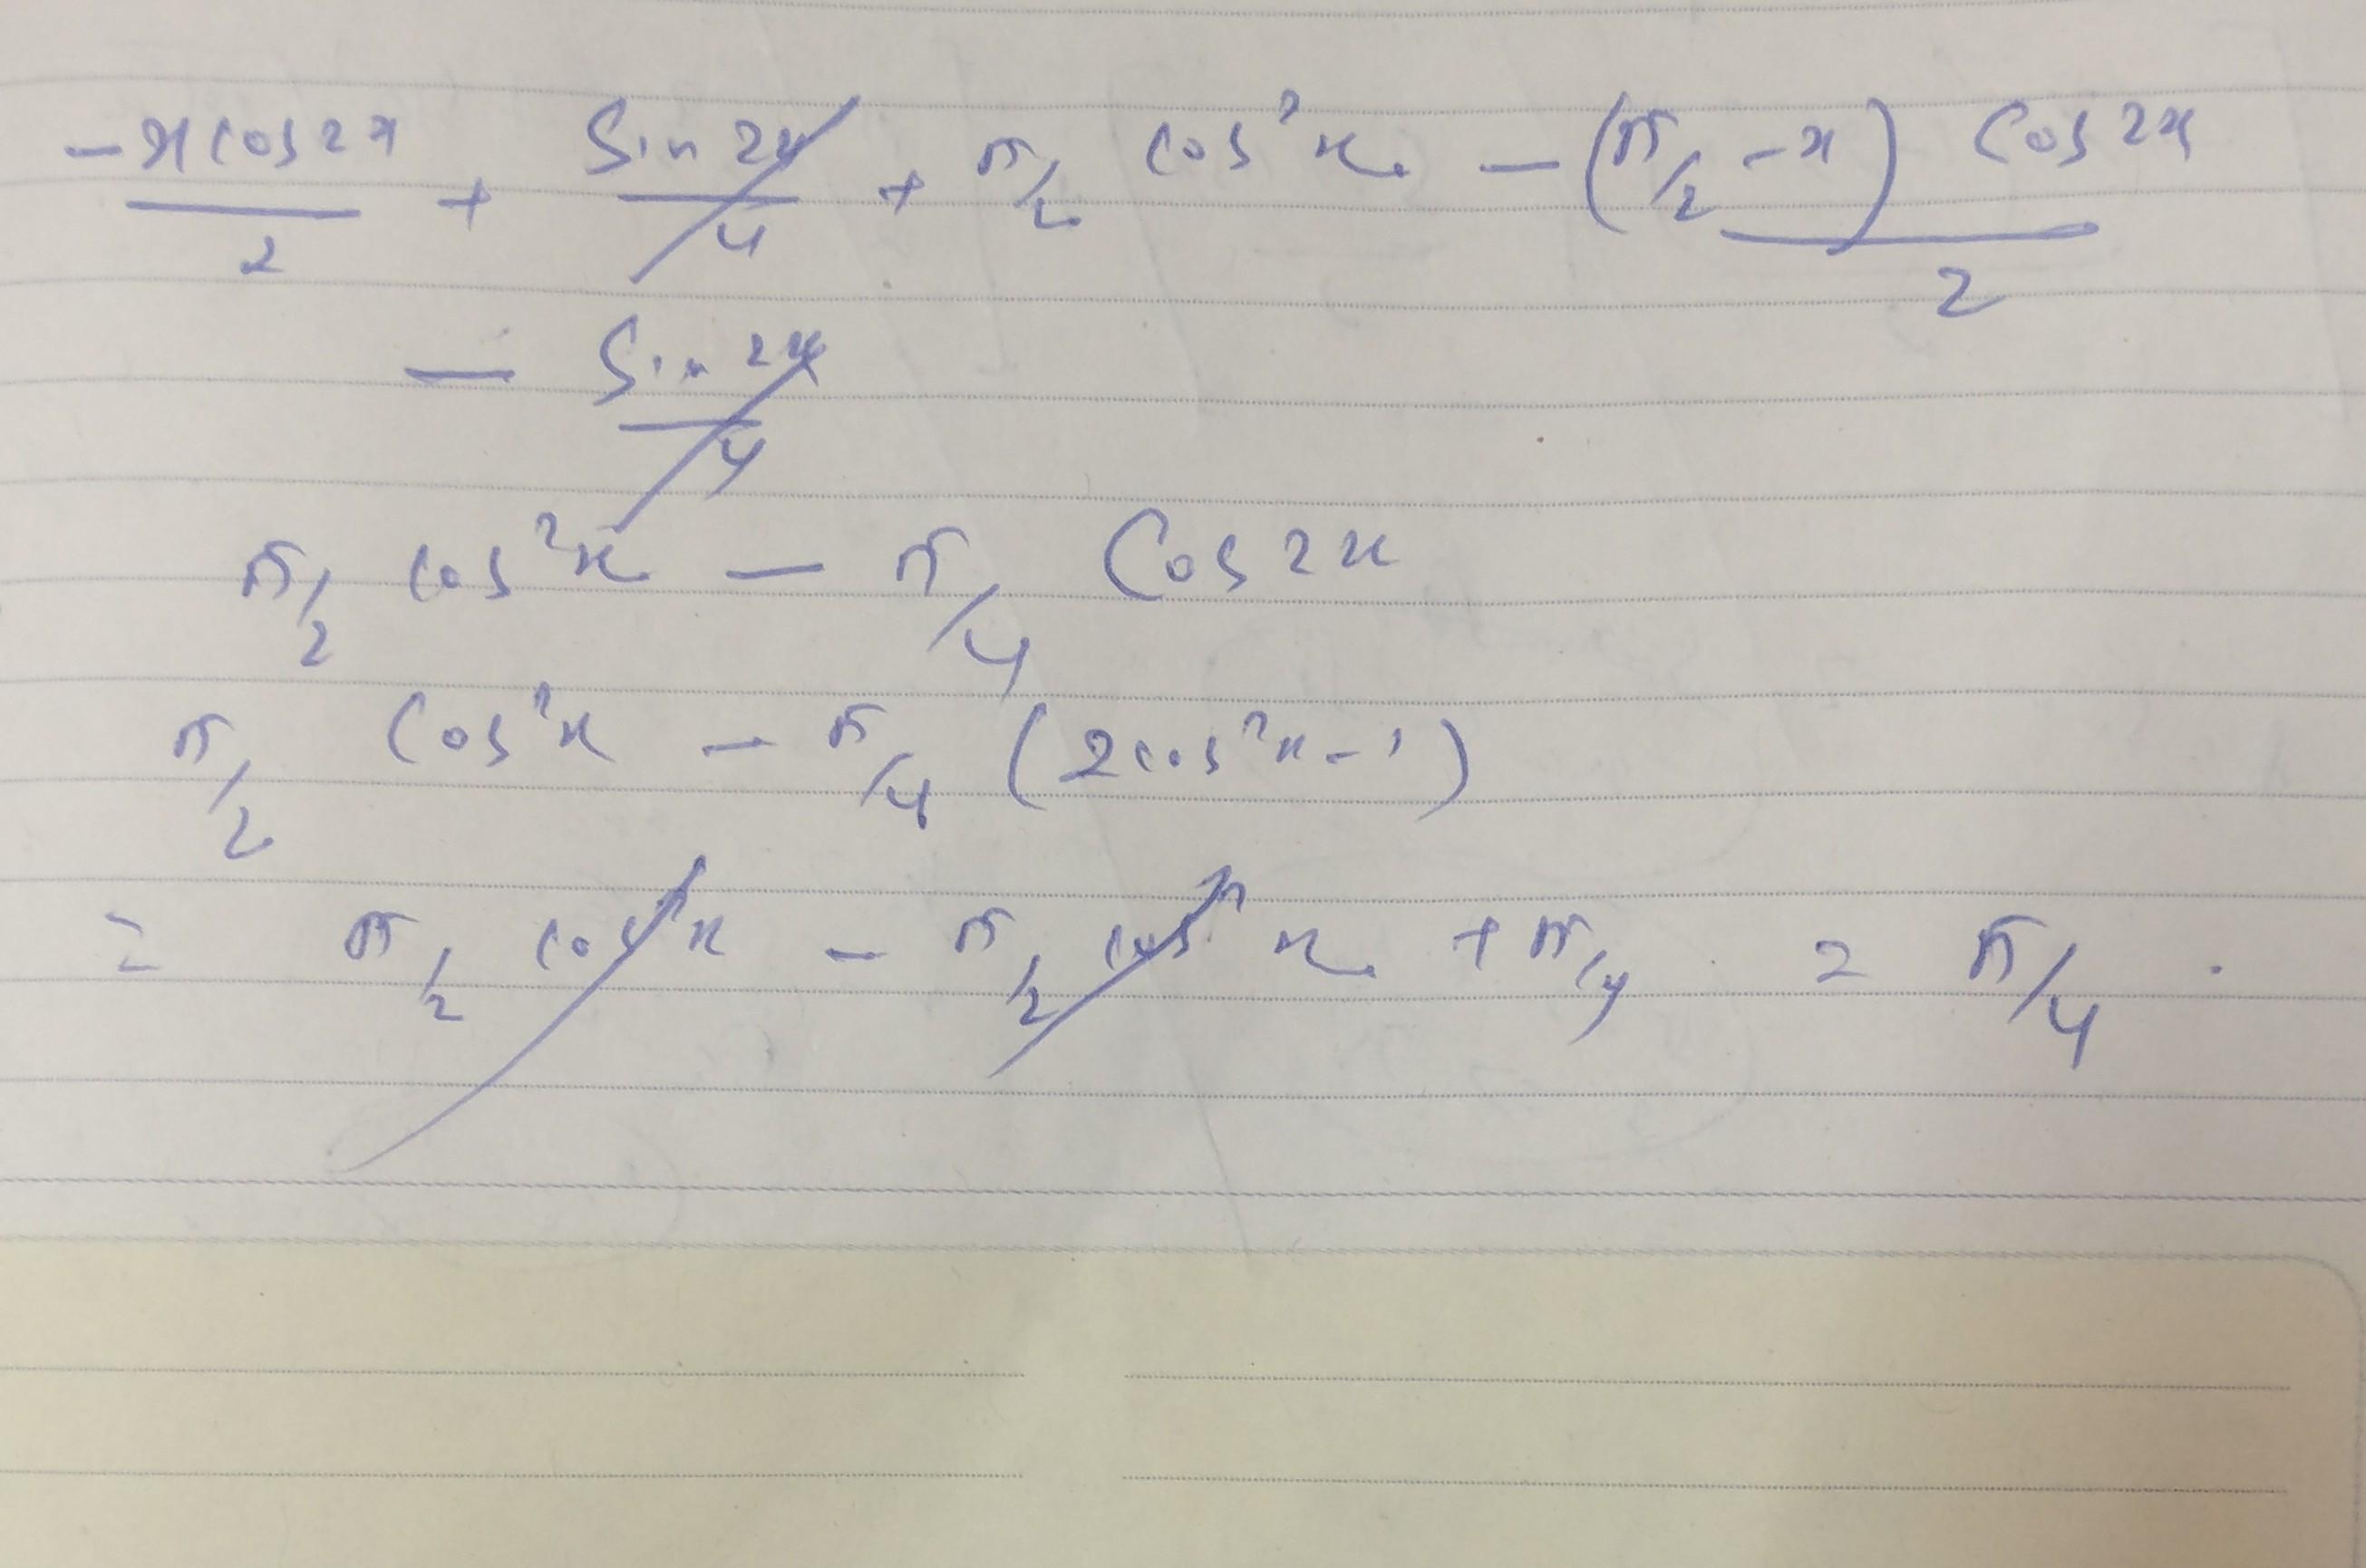 -x cos2x/2 + sin2x/4 + π/2 cos²x - (π/2 - x) cos2x/2
- sin2x/4
π/2 cos²x - π/4 cos2x
π/2 cos²x - π/4 (2cos²x - 1)
= π/2 cos²x - π/2 cos²x + π/4 = π/4 .